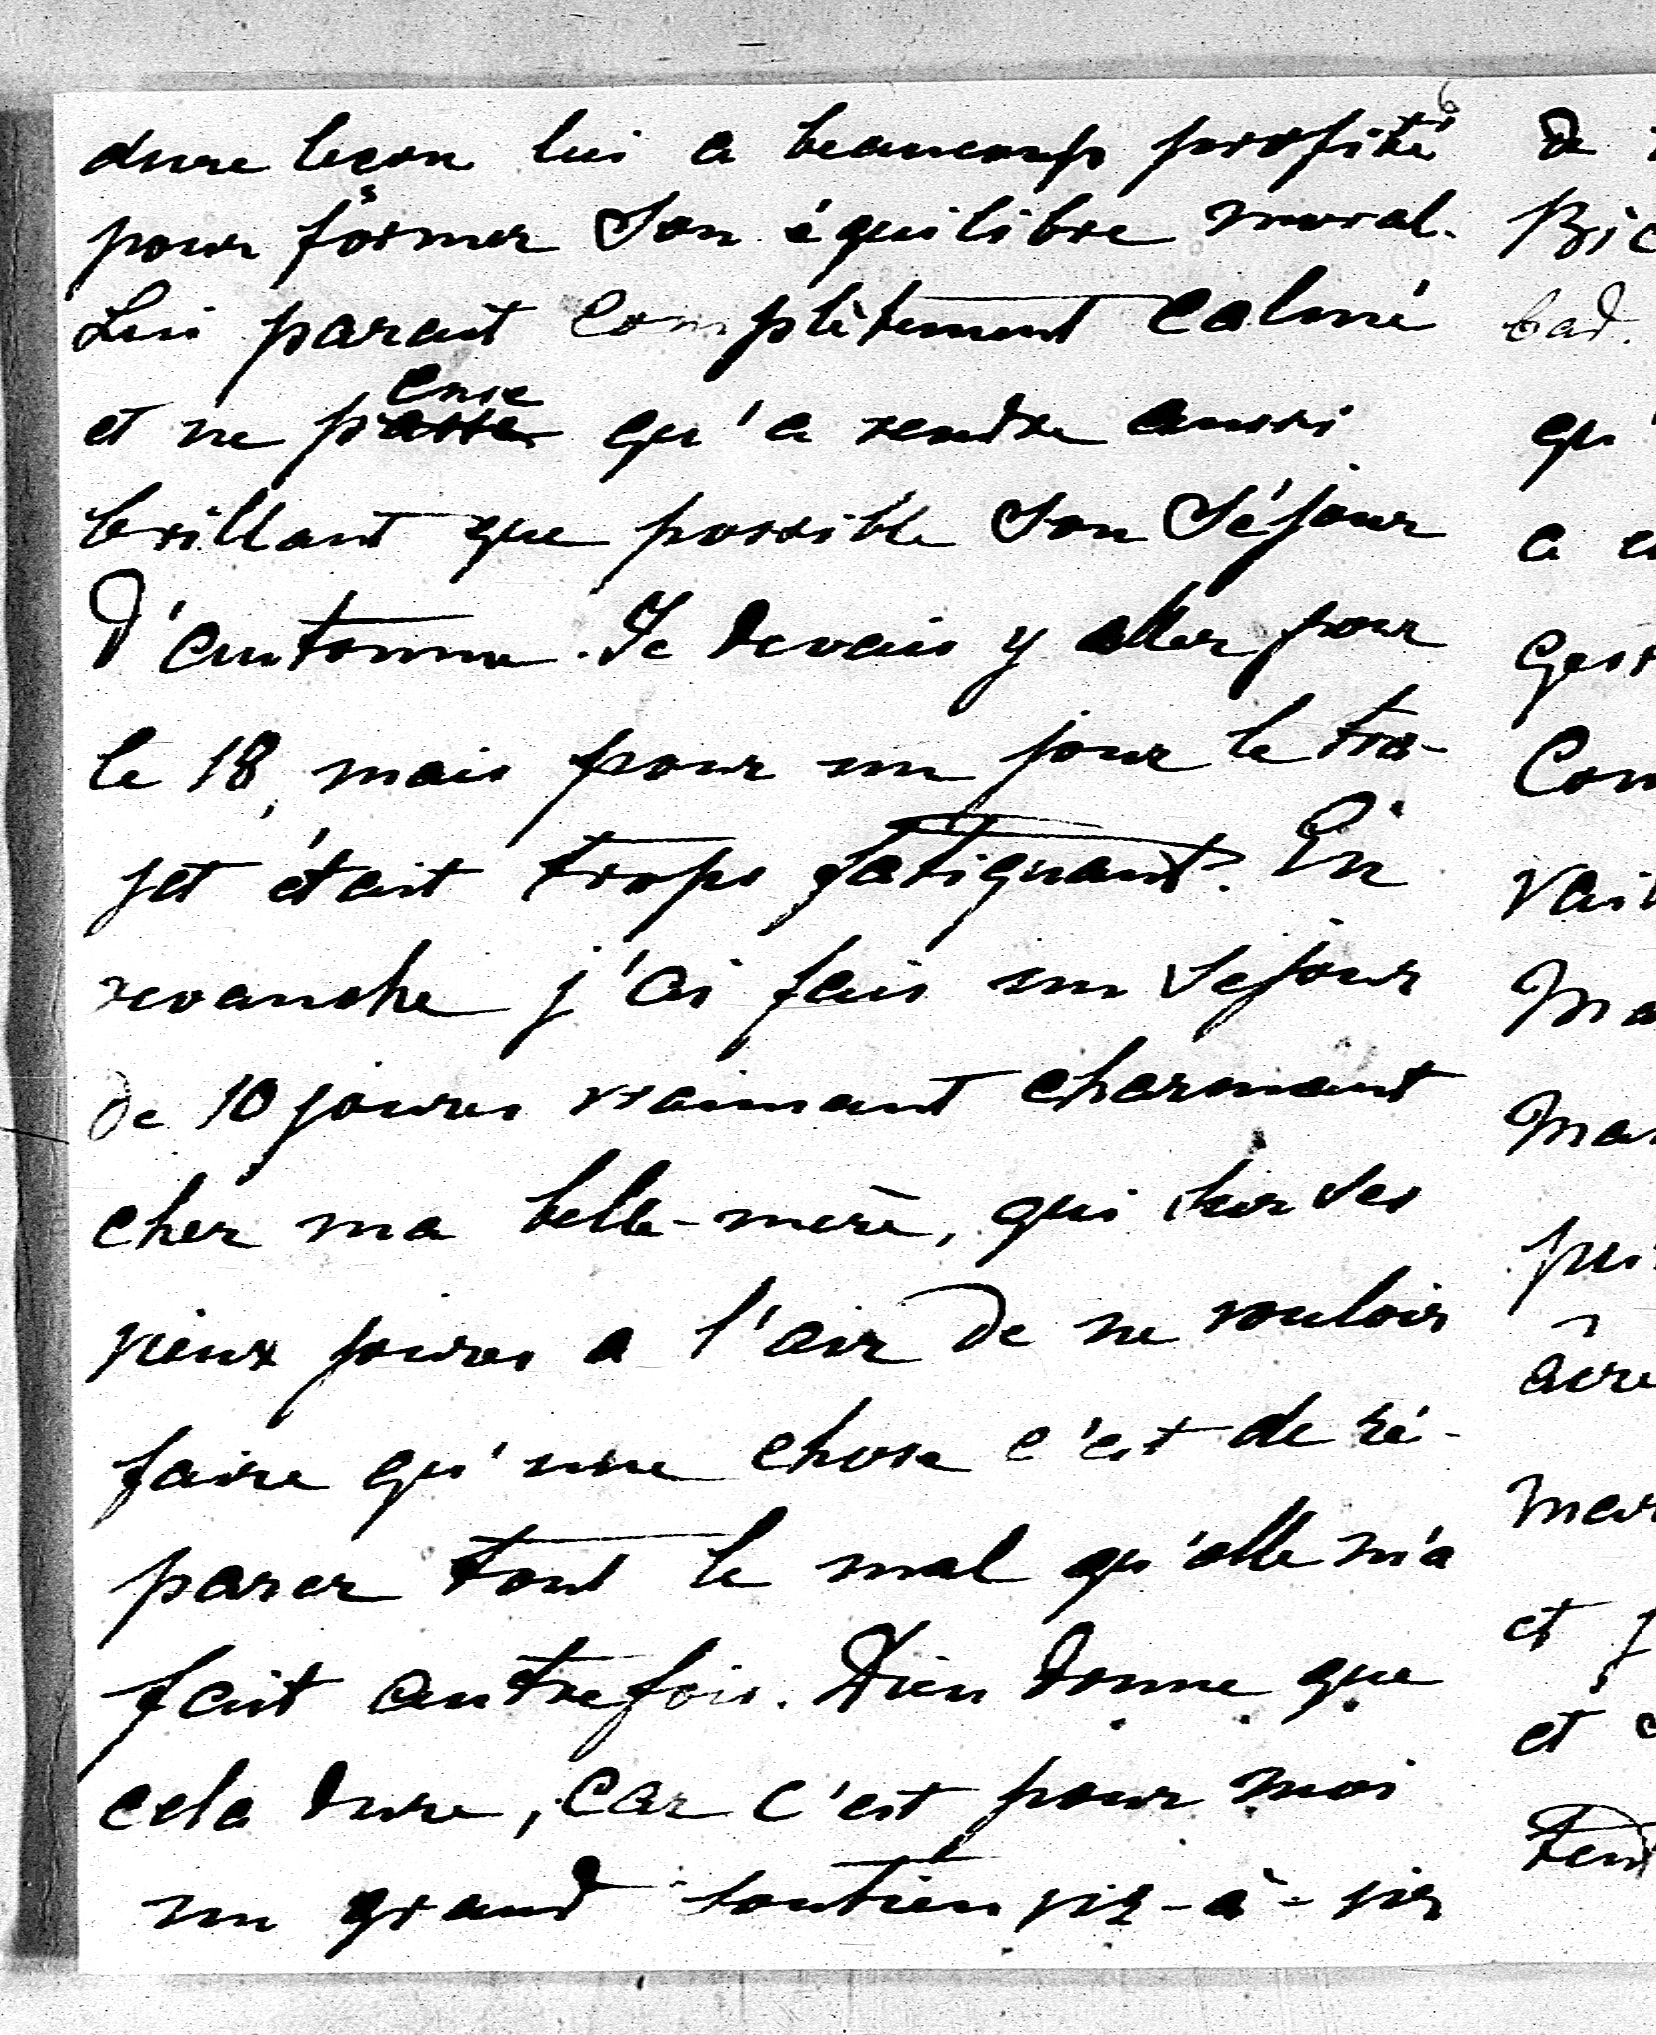 dure leçon lui a beaucoup profité
pour former son équilibre moral.
Lui parait complètement calmé
et ne pense qu'a rendre aussi
brillant que possible son séjour
d'automne. Je devais y aller pour
le 18, mais pour un jour le tra-
jet était trops fatiguant. En
revanche j'ai fais un sejour
de 10 jours vraimant charmant
cher ma belle-mère, qui sur ses
vieux jours a l'air de ne vouloir
faire qu'une chose c'est de ré-
parer tout le mal qu'elle m'a
fait autrefois. Dieu donne que
cela dure, car c'est pour moi
un grand soutien vis-à-vis
6
de
Bic
bad.
qu'
a
Com
vait
Ma
Mar
pui
et
et